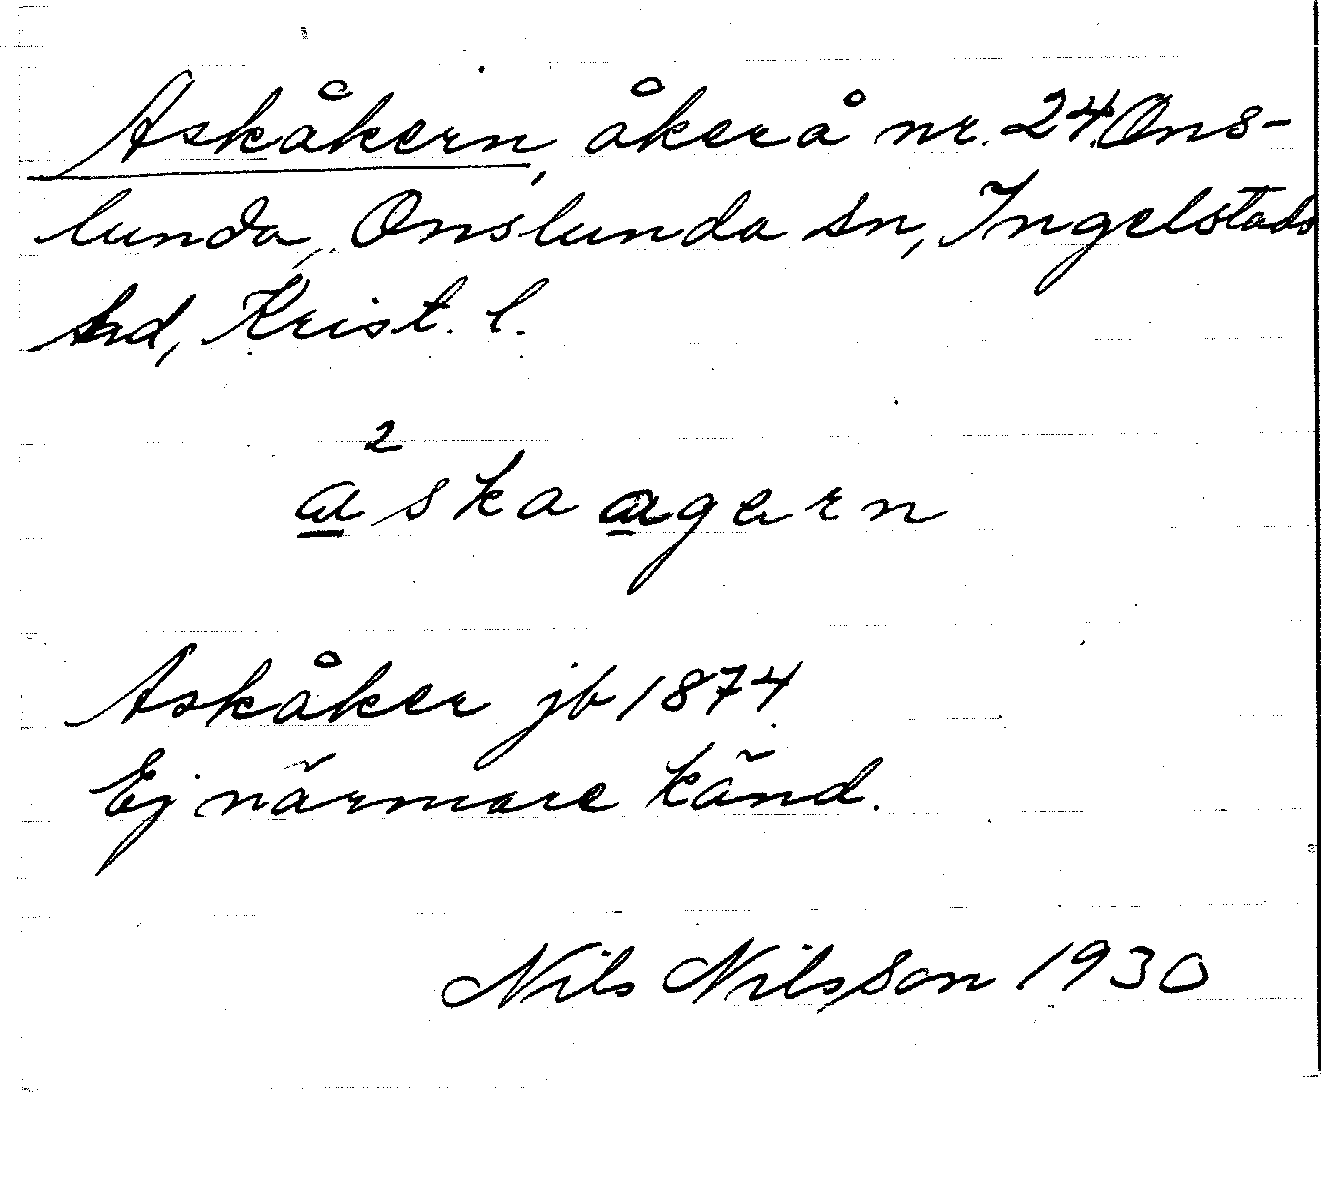 Askåkern, åker å nr. 24 Ons-
lunda, Onslunda sn, Ingelstads
hd, Krist. l.
a²skaagern
Askåker jb 1874
Ej närmare känd.
Nils Nilsson 1930